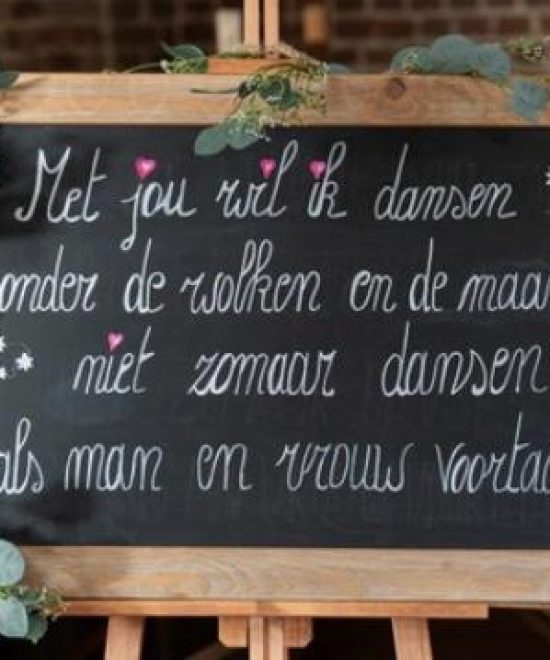 Met jou wil ik dansen
onder de wolken en de maan
niet zomaar dansen
als man en vrouw voortaa